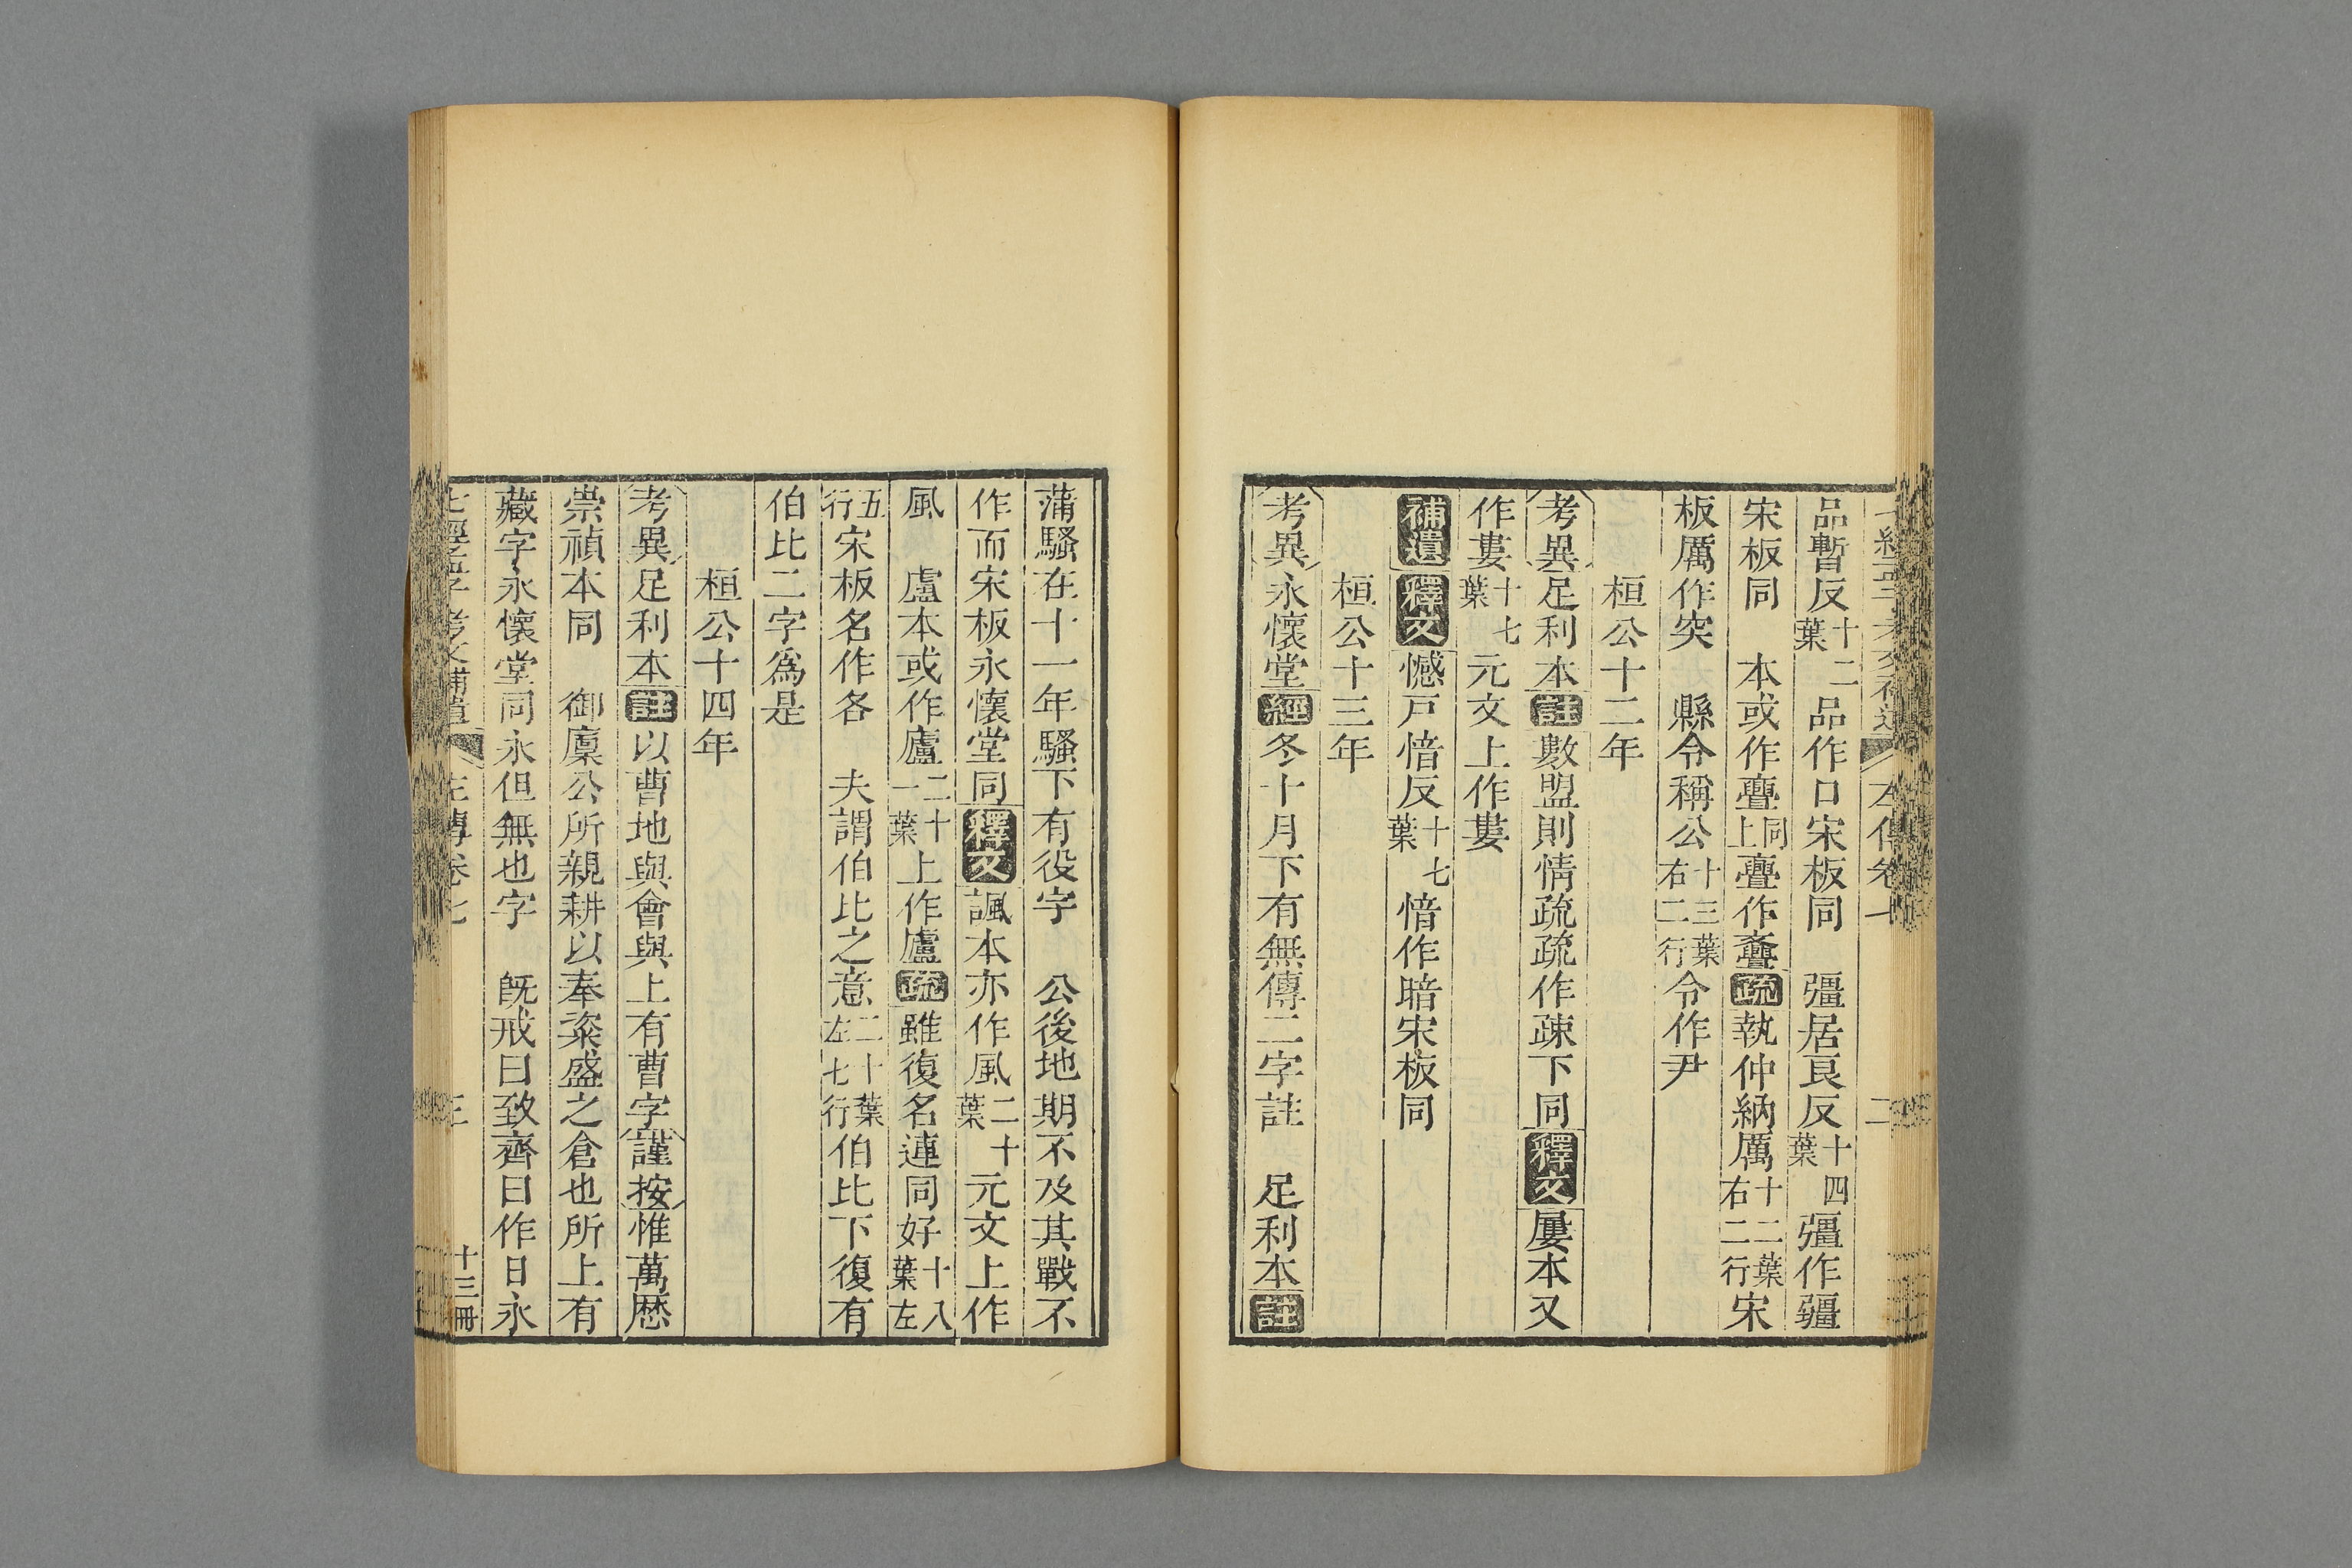 品暫反十二葉品作口宋板同　彊居良反十四葉彊作疆
宋板同　本或作亹同上亹作斖疏執仲納厲十二葉右二行宋
板厲作突　縣令稱公十三葉右二行令作尹
桓公十二年
考異足利本註數盟則情疏疏作疎下同釋文屢本又
作婁十七葉元文上作婁
補遺釋文憾戸愔反十七葉愔作暗宋板同
桓公十三年
考異永懷堂經冬十月下有無傳二字註　足利本註
蒲騷在十一年騷下有役字　公後地期不及其戰不
作而宋板永懷堂同釋文諷本亦作風二十葉元文上作
風　盧本或作廬二十一葉上作廬疏雖復名連同好十八葉左
五行宋板名作各　夫謂伯比之意二十葉左七行伯比下復有
伯比二字爲是
桓公十四年
考異足利本註以曹地與會與上有曹字謹按惟萬歷
崇禎本同　御廩公所親耕以奉粢盛之倉也所上有
藏字永懷堂同永但無也字　旣戒曰致齊曰作日永
左傳卷七　三　十三冊